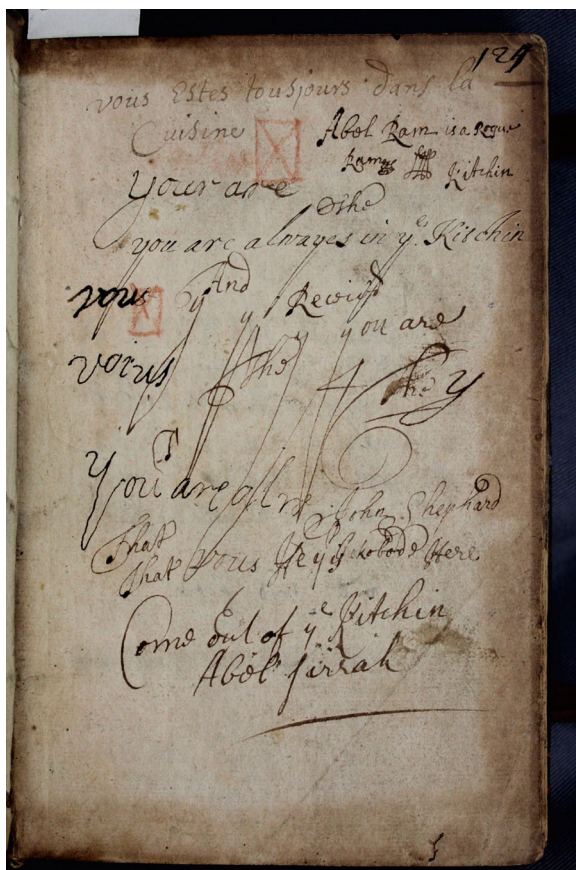 129
vous Estes tousjours dans la
Cuisine
Abel Ram is a Rogue
Ram Kitchin
Your are
The
you are alwayes in yᵉ Kitchin
vous And
y you are
vous The 4 the y
T
You are
John Shephard
That
that vous Here
Come out of yᵉ Kitchin
Abel sirrah